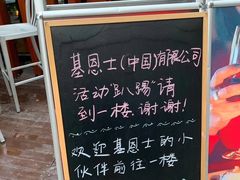 基恩士(中国)有限公司
活动"趴踢"请
到一楼,谢谢!
欢迎基恩士的小
伙伴前往一楼